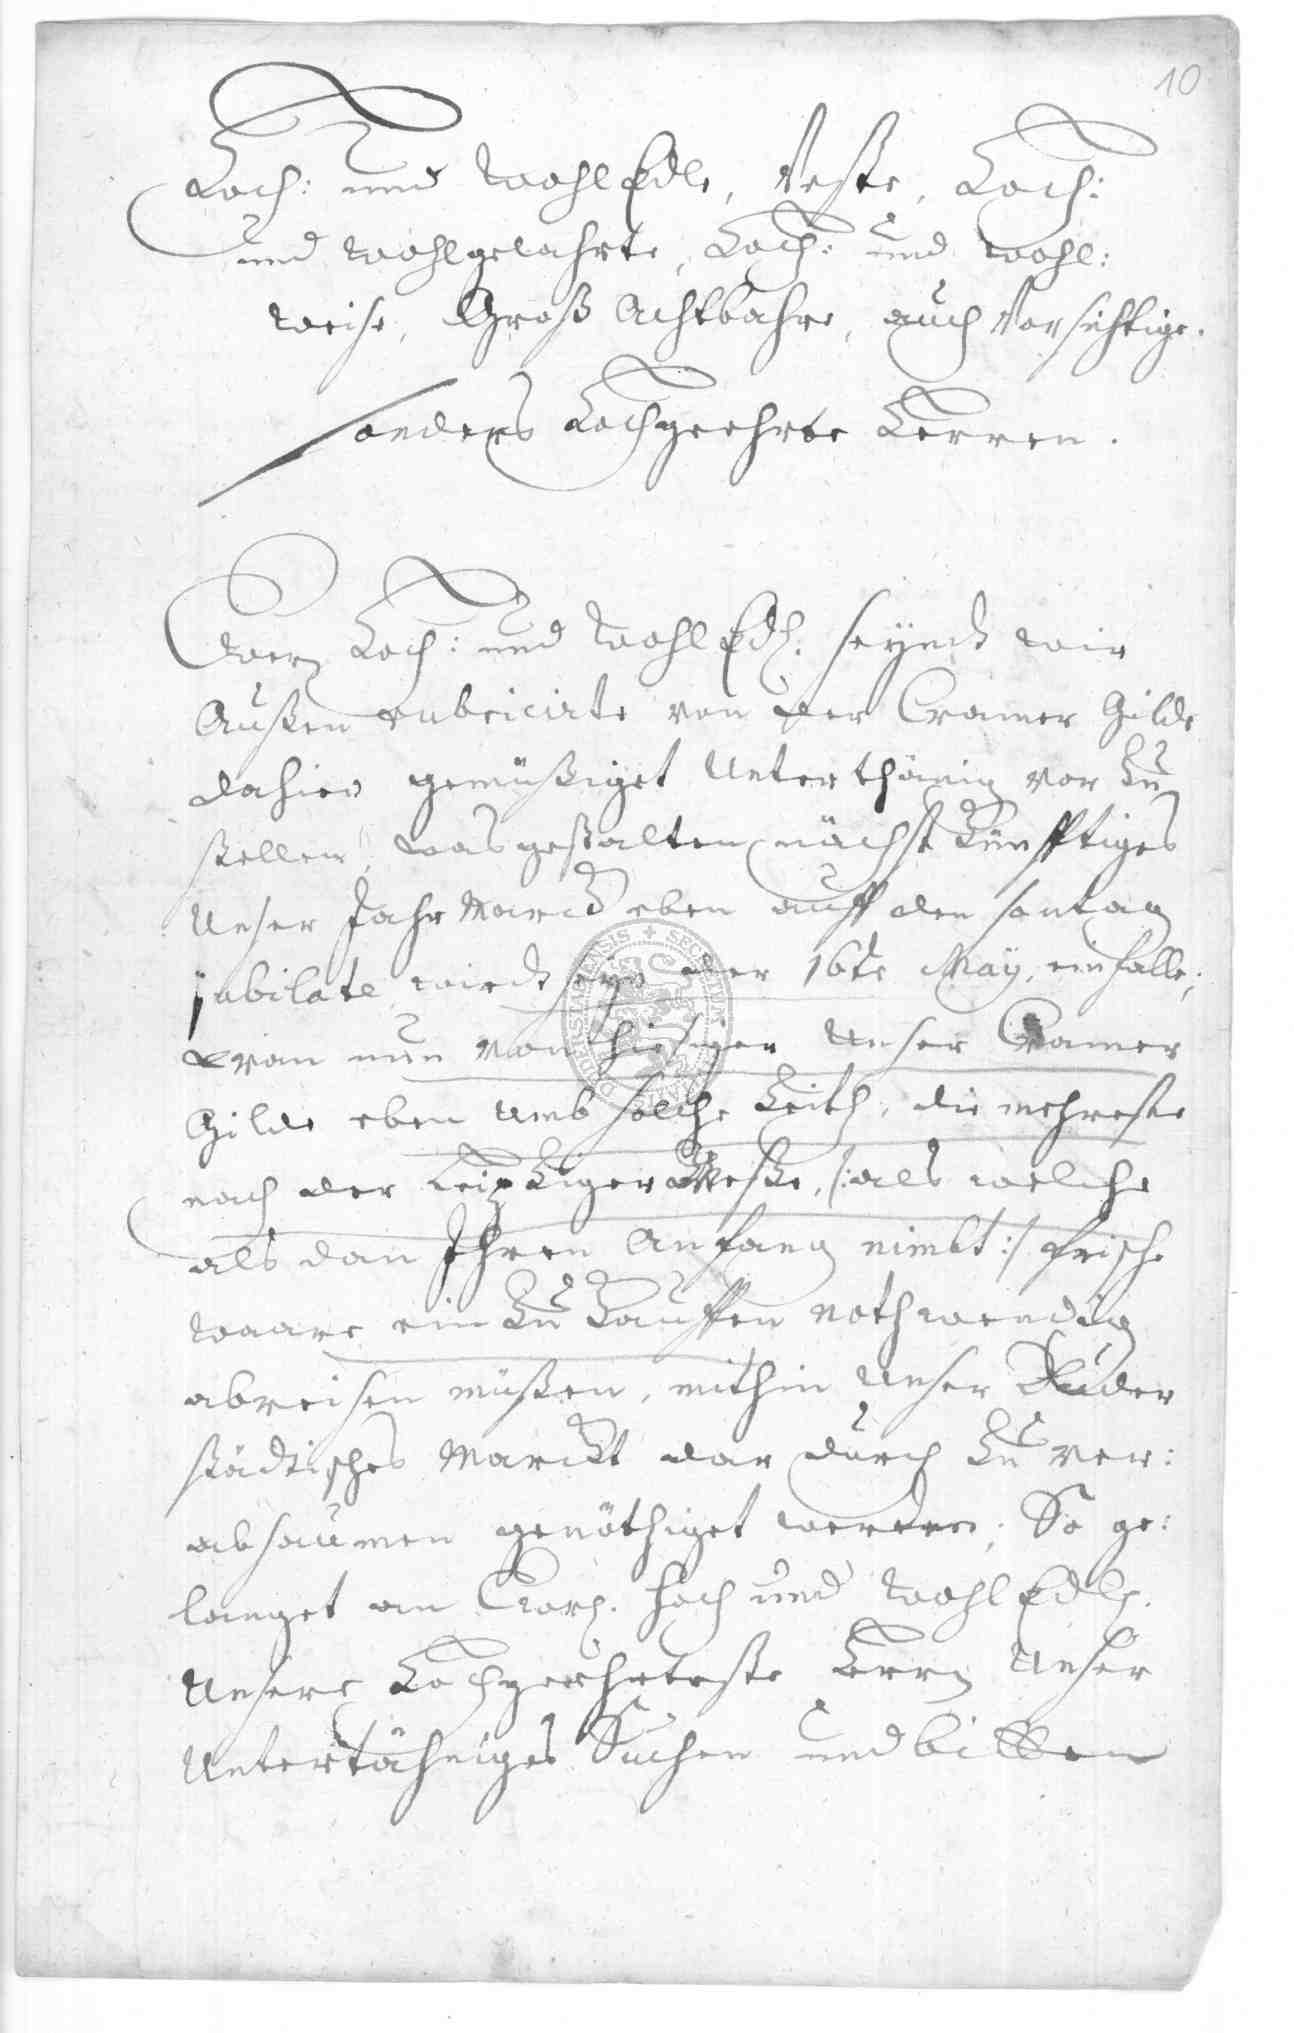 10
Hoch: und WohlEdle, Veste, Hoch:
und wohlgelahrte, Hoch: und wohl:
weise, Groß Achtbahre, auch Vorsichtige.
sonders Hochgeehrte Herren.
Ewern Hoch: und WohlEdl. seyndt wir
Außen rubricirte von der Cramer Gilde
dahier gemüßiget Unterthänig vor zu
stellen, was gestalten nächst künfftiges
Unser Jahr Marck eben auff den sontag
jubilate, wird seyn der 16te May, einfalle;
wan nun von hiesiger Unser Cramer
Gilde eben umb solche Zeith, die mehreste
nach der Leipziger Meße, /:als welche
als dan Ihren Anfang nimbt:/ frische
waare ein zu kauffen nothwendig
abreisen müßen, mithin Unser Duder
städtisches Marckt dar durch zu ver:
absaumen genöthiget werden; So ge:
langet an Ewer. Hoch und WohlEdl.
Unsere Hochgeehrteste Herrn Unser
Untertähniges Suchen und bitten
SECRETUM DUDERSTADENSIS